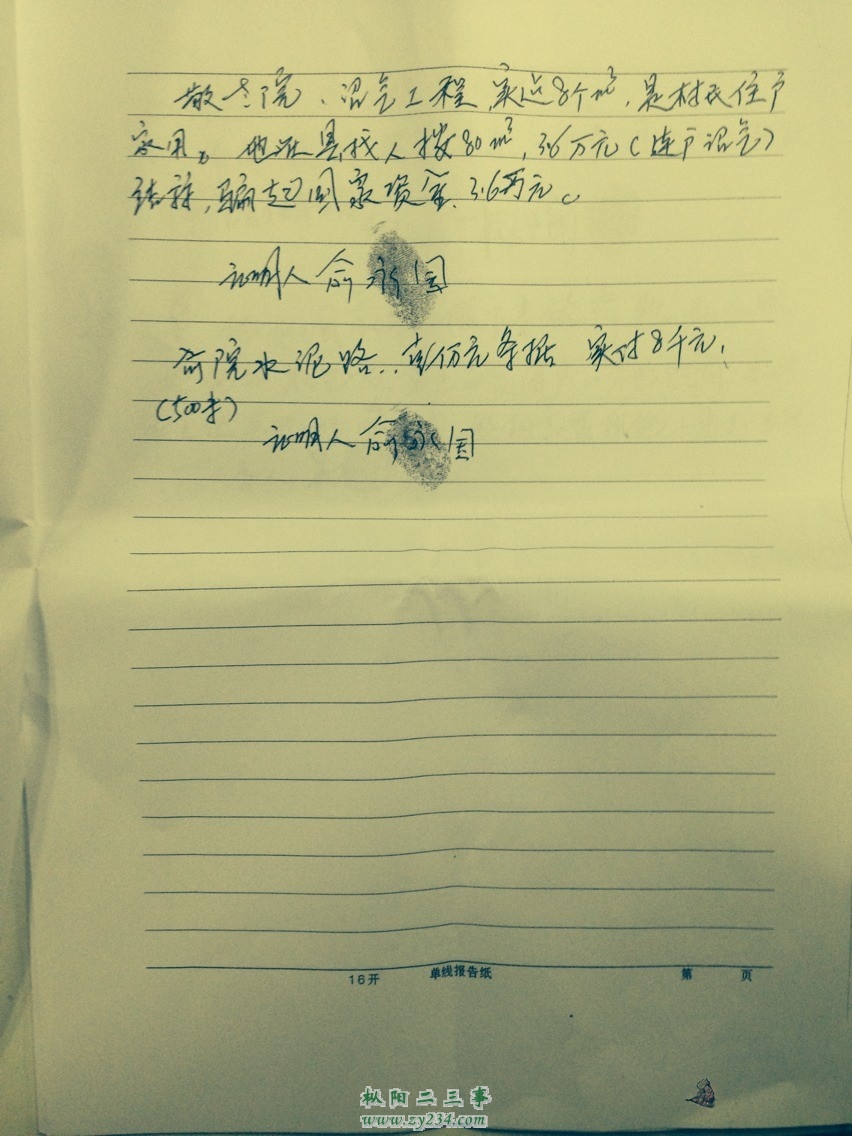 敬老院、沼气工程,实近8个m³,是村民住户
家用。他在县找人拨80m³,3.6万元(连户沼气)
骗起国家资金、3.6万元。
证明人 俞永国
俞院水泥路..壹万元条据 实付8千元,
(500米)
证明人 俞永国
16开 单线报告纸 第 页
枞阳二三事
www.zy234.com